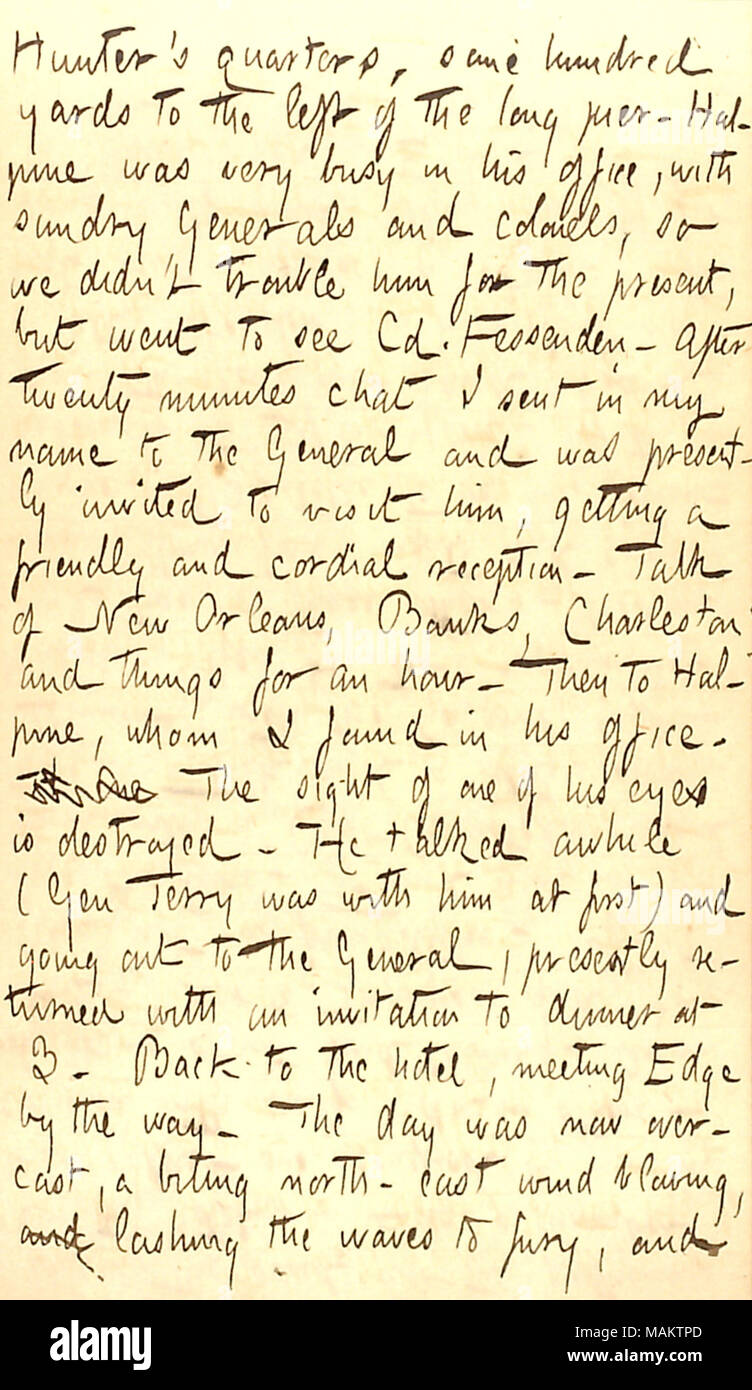 Hunter's quarters, some hundred
yards to the left of the long pier - Hal-
pine was very busy in his office, with
sundry Generals and colonels, so
we didn't trouble him for the present,
but went to see Col. Fessenden - After
twenty minutes chat I sent in my
name to the General and was present-
ly invited to visit him, getting a
friendly and cordial reception - Talk
of New Orleans, Banks, Charleston
and things for an hour - Then to Hal-
pine, whom I found in his office.
The sight of one of his eyes
is destroyed - He talked awhile
(Gen Terry was with him at first) and
going out to the General, presently re-
turned with an invitation to dinner at
3 - Back to the hotel, meeting Edge
by the way - The day was now over-
cast, a biting north-east wind blowing,
and lashing the waves to fury, and
alamy
Image ID: MAKTPD
www.alamy.com